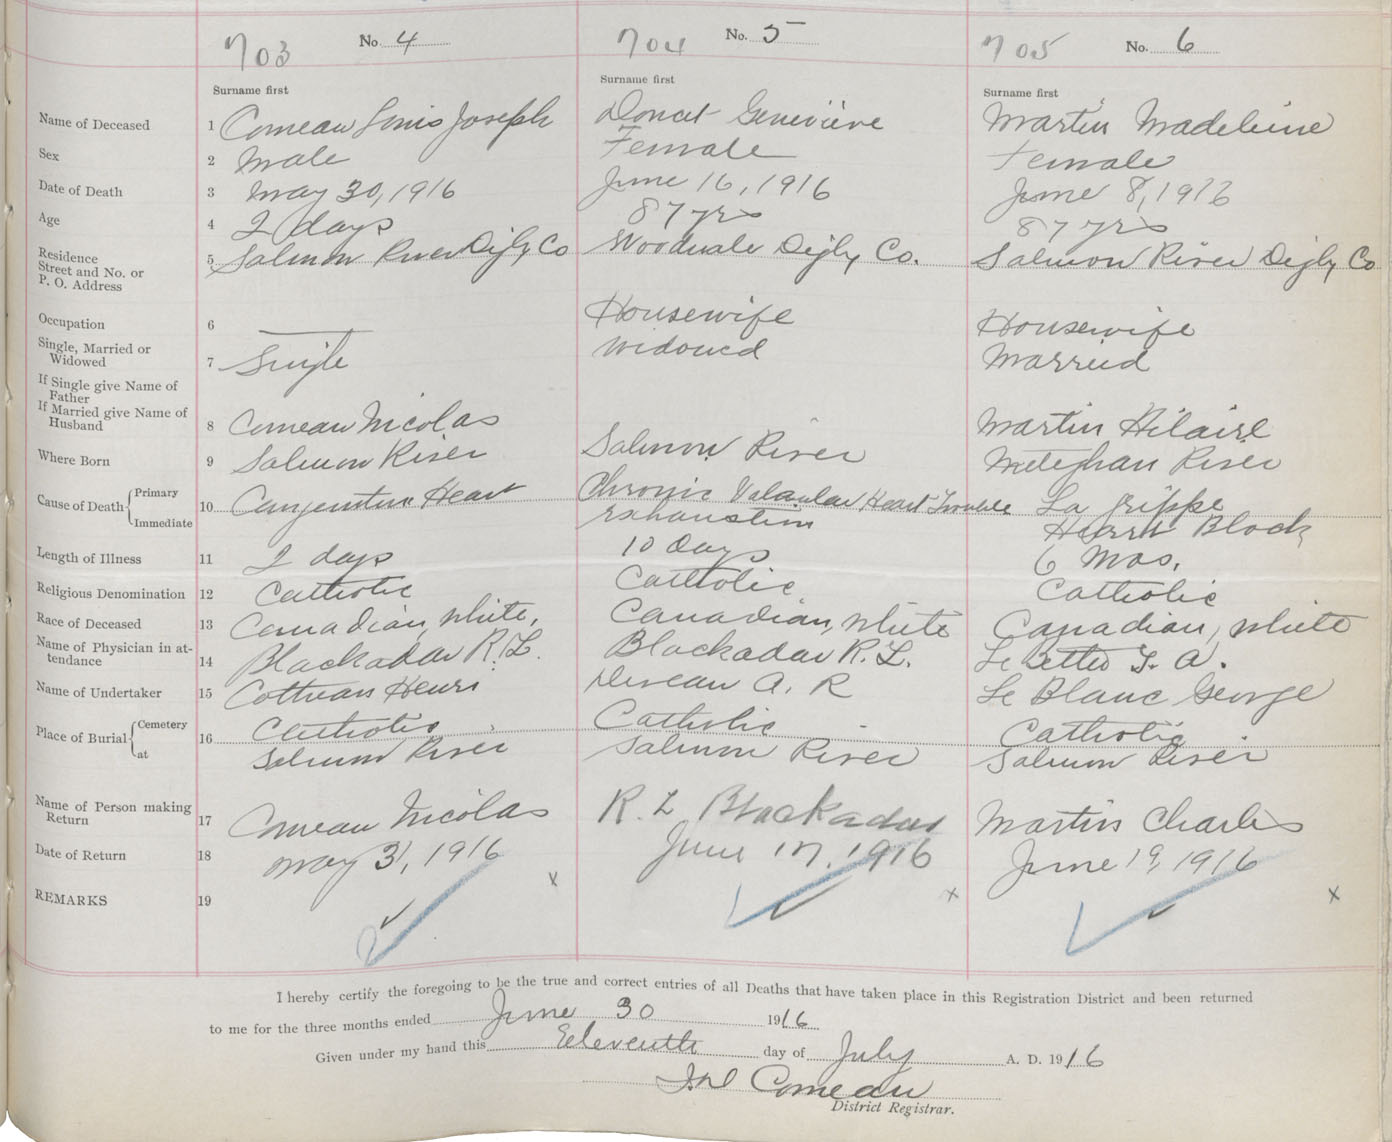 703 No. 4 704 No. 5 705 No. 6
Surname first Surname first Surname first
Name of Deceased 1 Comeau Louis Joseph Doucet Geneviève Martin Madeleine
Sex 2 Male Female Female
Date of Death 3 May 30, 1916 June 16, 1916 June 8, 1916
Age 4 2 days 87 yrs 87 yrs
Residence
Street and No. or
P. O. Address 5 Salmon River Digby Co Woodvale Digby Co. Salmon River Digby Co
Occupation 6 — Housewife Housewife
Single, Married or
Widowed 7 Single Widowed Married
If Single give Name of
Father
If Married give Name of
Husband 8 Comeau Nicolas Martin Hilaire
Where Born 9 Salmon River Salmon River Meteghan River
Cause of Death { Primary 10 Congenitive Heart Chronic Valavular Heart Trouble La Grippe
Immediate Exhaustion Heart Block
Length of Illness 11 2 days 10 Days 6 Mos.
Religious Denomination 12 Catholic Catholic Catholic
Race of Deceased 13 Canadian, White, Canadian, White Canadian, White
Name of Physician in at-
tendance 14 Blackadar R. L. Blackadar R. L. Le
Name of Undertaker 15 Henri Deveau A. R Le Blanc George
Place of Burial { Cemetery 16 Catholic Catholic Catholic
at Salmon River Salmon River Salmon River
Name of Person making
Return 17 Comeau Nicolas R. L Blackadar Martin Charles
Date of Return 18 May 31, 1916 June 17, 1916 June 19, 1916
REMARKS 19 x x x
I hereby certify the foregoing to be the true and correct entries of all Deaths that have taken place in this Registration District and been returned
to me for the three months ended June 30 1916
Given under my hand this Eleventh day of July A. D. 1916
Comeau
District Registrar.